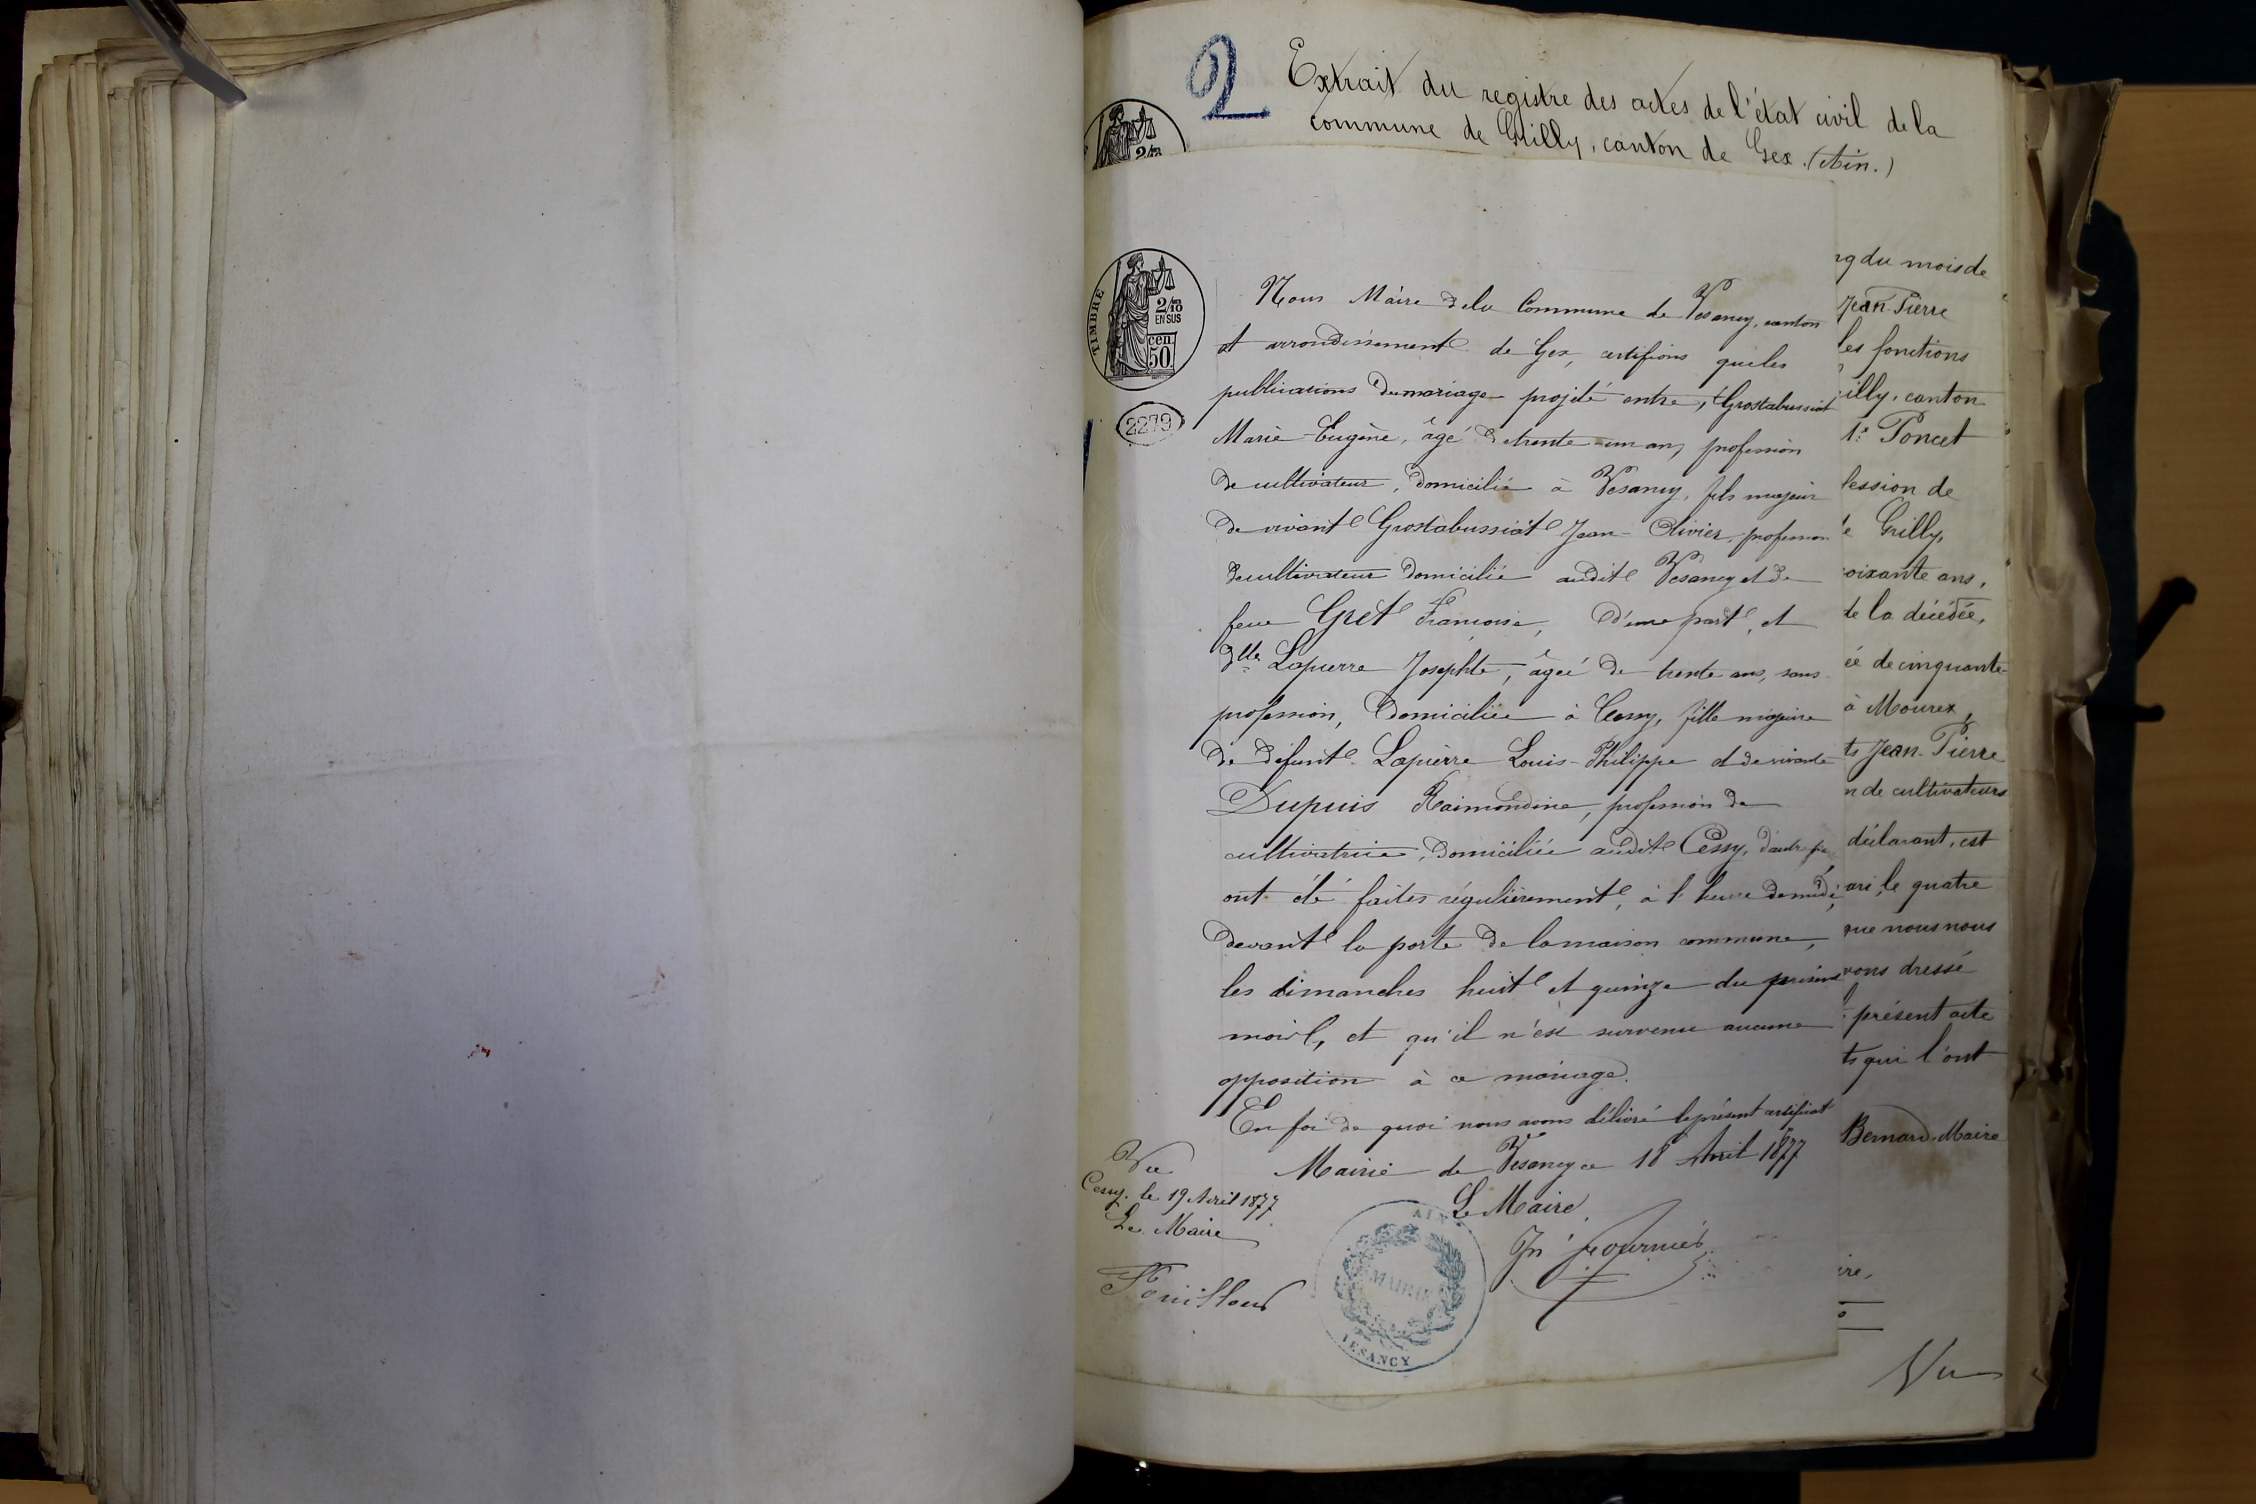 2
Extrait du registre des actes de l'état civil de la
commune de Grilly, canton de Gex. (Ain.)
2/10
TIMBRE
2/10
EN SUS
cen.
50
2279
Nous Maire de la Commune de Vesancy, canton
et arrondissement de Gex, certifions que les
publications du mariage projeté entre, Grostabussiat
Marie-Eugène, âgé de trente-un ans, profession
de cultivateur, domicilié à Vesancy, fils majeur
de vivant Grostabussiat Jean-Olivier, profession
de cultivateur domicilié audit Vesancy et de
feue Grêt Françoise, d'une part, et
Dlle Lapierre Josephte, âgée de trente ans, sans
profession, domiciliée à Cessy, fille majeure
de défunt Lapierre Louis-Philippe et de vivante
Dupuis Raimondine, profession de
cultivatrice, domiciliée audit Cessy, d'autre
ont été faites régulièrement, à l'heure de midi,
devant la porte de la maison commune,
les dimanches huit et quinze du présent
mois, et qu'il n'est survenu aucune
opposition à ce mariage.
En foi de quoi nous avons délivré le présent certificat
Mairie de Vesancy ce 18 Avril 1877
Le Maire,
Fournier
Vu
Cessy, le 19 Avril 1877
Le Maire
AIN
MAIRIE
VESANCY
du mois de
Jean-Pierre
les fonctions
illy, canton
Poncet
fession de
Grilly,
oixante ans,
de la décédée,
ée de cinquante-
à Mourex,
ts Jean-Pierre
n de cultivateurs
déclarant, est
ari, le quatre
que nous nous
vons dressé
présent acte
ts qui l'ont
Bernard, Maire
ire,
Vu